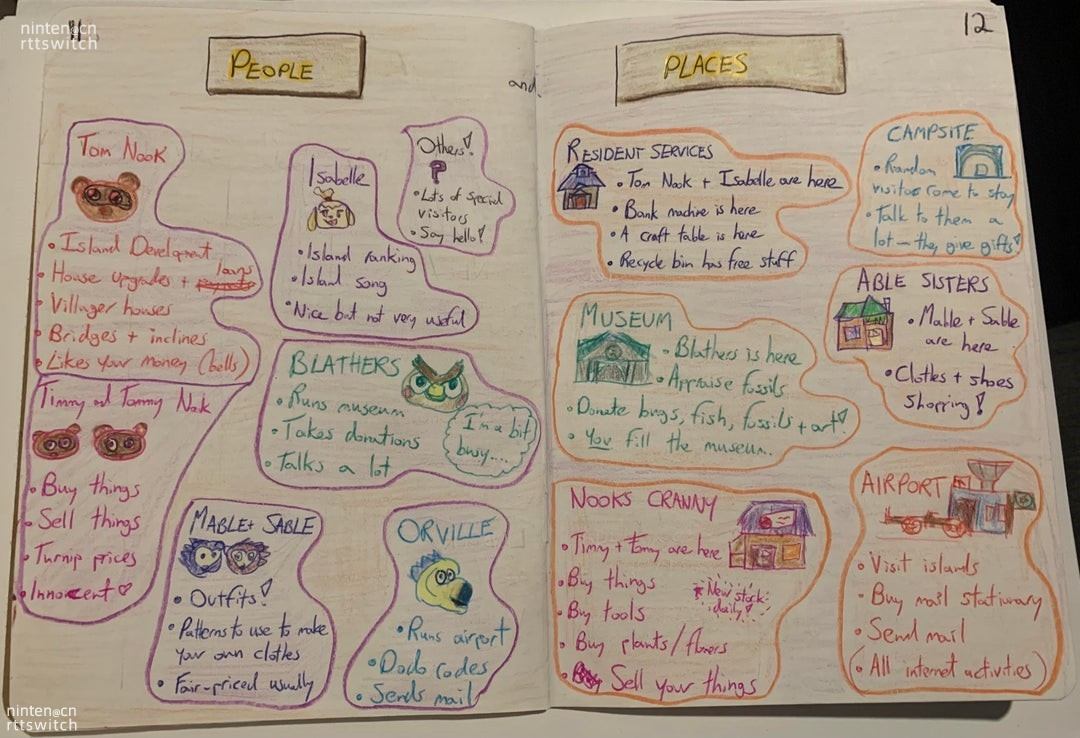 ninten@cn
rttswitch
11
PEOPLE
and
Tom Nook
• Island Development
• House upgrades + loans
• Villager houses
• Bridges + inclines
• Likes your money (bells)
Timmy and Tommy Nook
• Buy things
• Sell things
• Turnip prices
• Innocent ♡
Isabelle
• Island ranking
• Island song
• Nice but not very useful
Others!
?
• Lots of special
visitors
• Say hello!
BLATHERS
• Runs museum
• Takes donations
• Talks a lot
I'm a bit
busy....
MABLE + SABLE
• Outfits!
• Patterns to use to make
your own clothes
• Fair-priced usually
ORVILLE
• Runs airport
• Dodo codes
• Sends mail
12
PLACES
RESIDENT SERVICES
• Tom Nook + Isabelle are here
• Bank machine is here
• A craft table is here
• Recycle bin has free stuff
CAMPSITE
• Random
visitors come to stay
• Talk to them a
lot — they give gifts!
MUSEUM
• Blathers is here
• Appraise fossils
• Donate bugs, fish, fossils + art!
• You fill the museum.
ABLE SISTERS
• Mable + Sable
are here
• Clothes + shoes
shopping!
NOOKS CRANNY
• Timmy + Tommy are here
• Buy things
New stock
daily!
• Buy tools
• Buy plants/flowers
• Sell your things
AIRPORT
• Visit islands
• Buy mail stationary
• Send mail
(• All internet activities)
ninten@cn
rttswitch